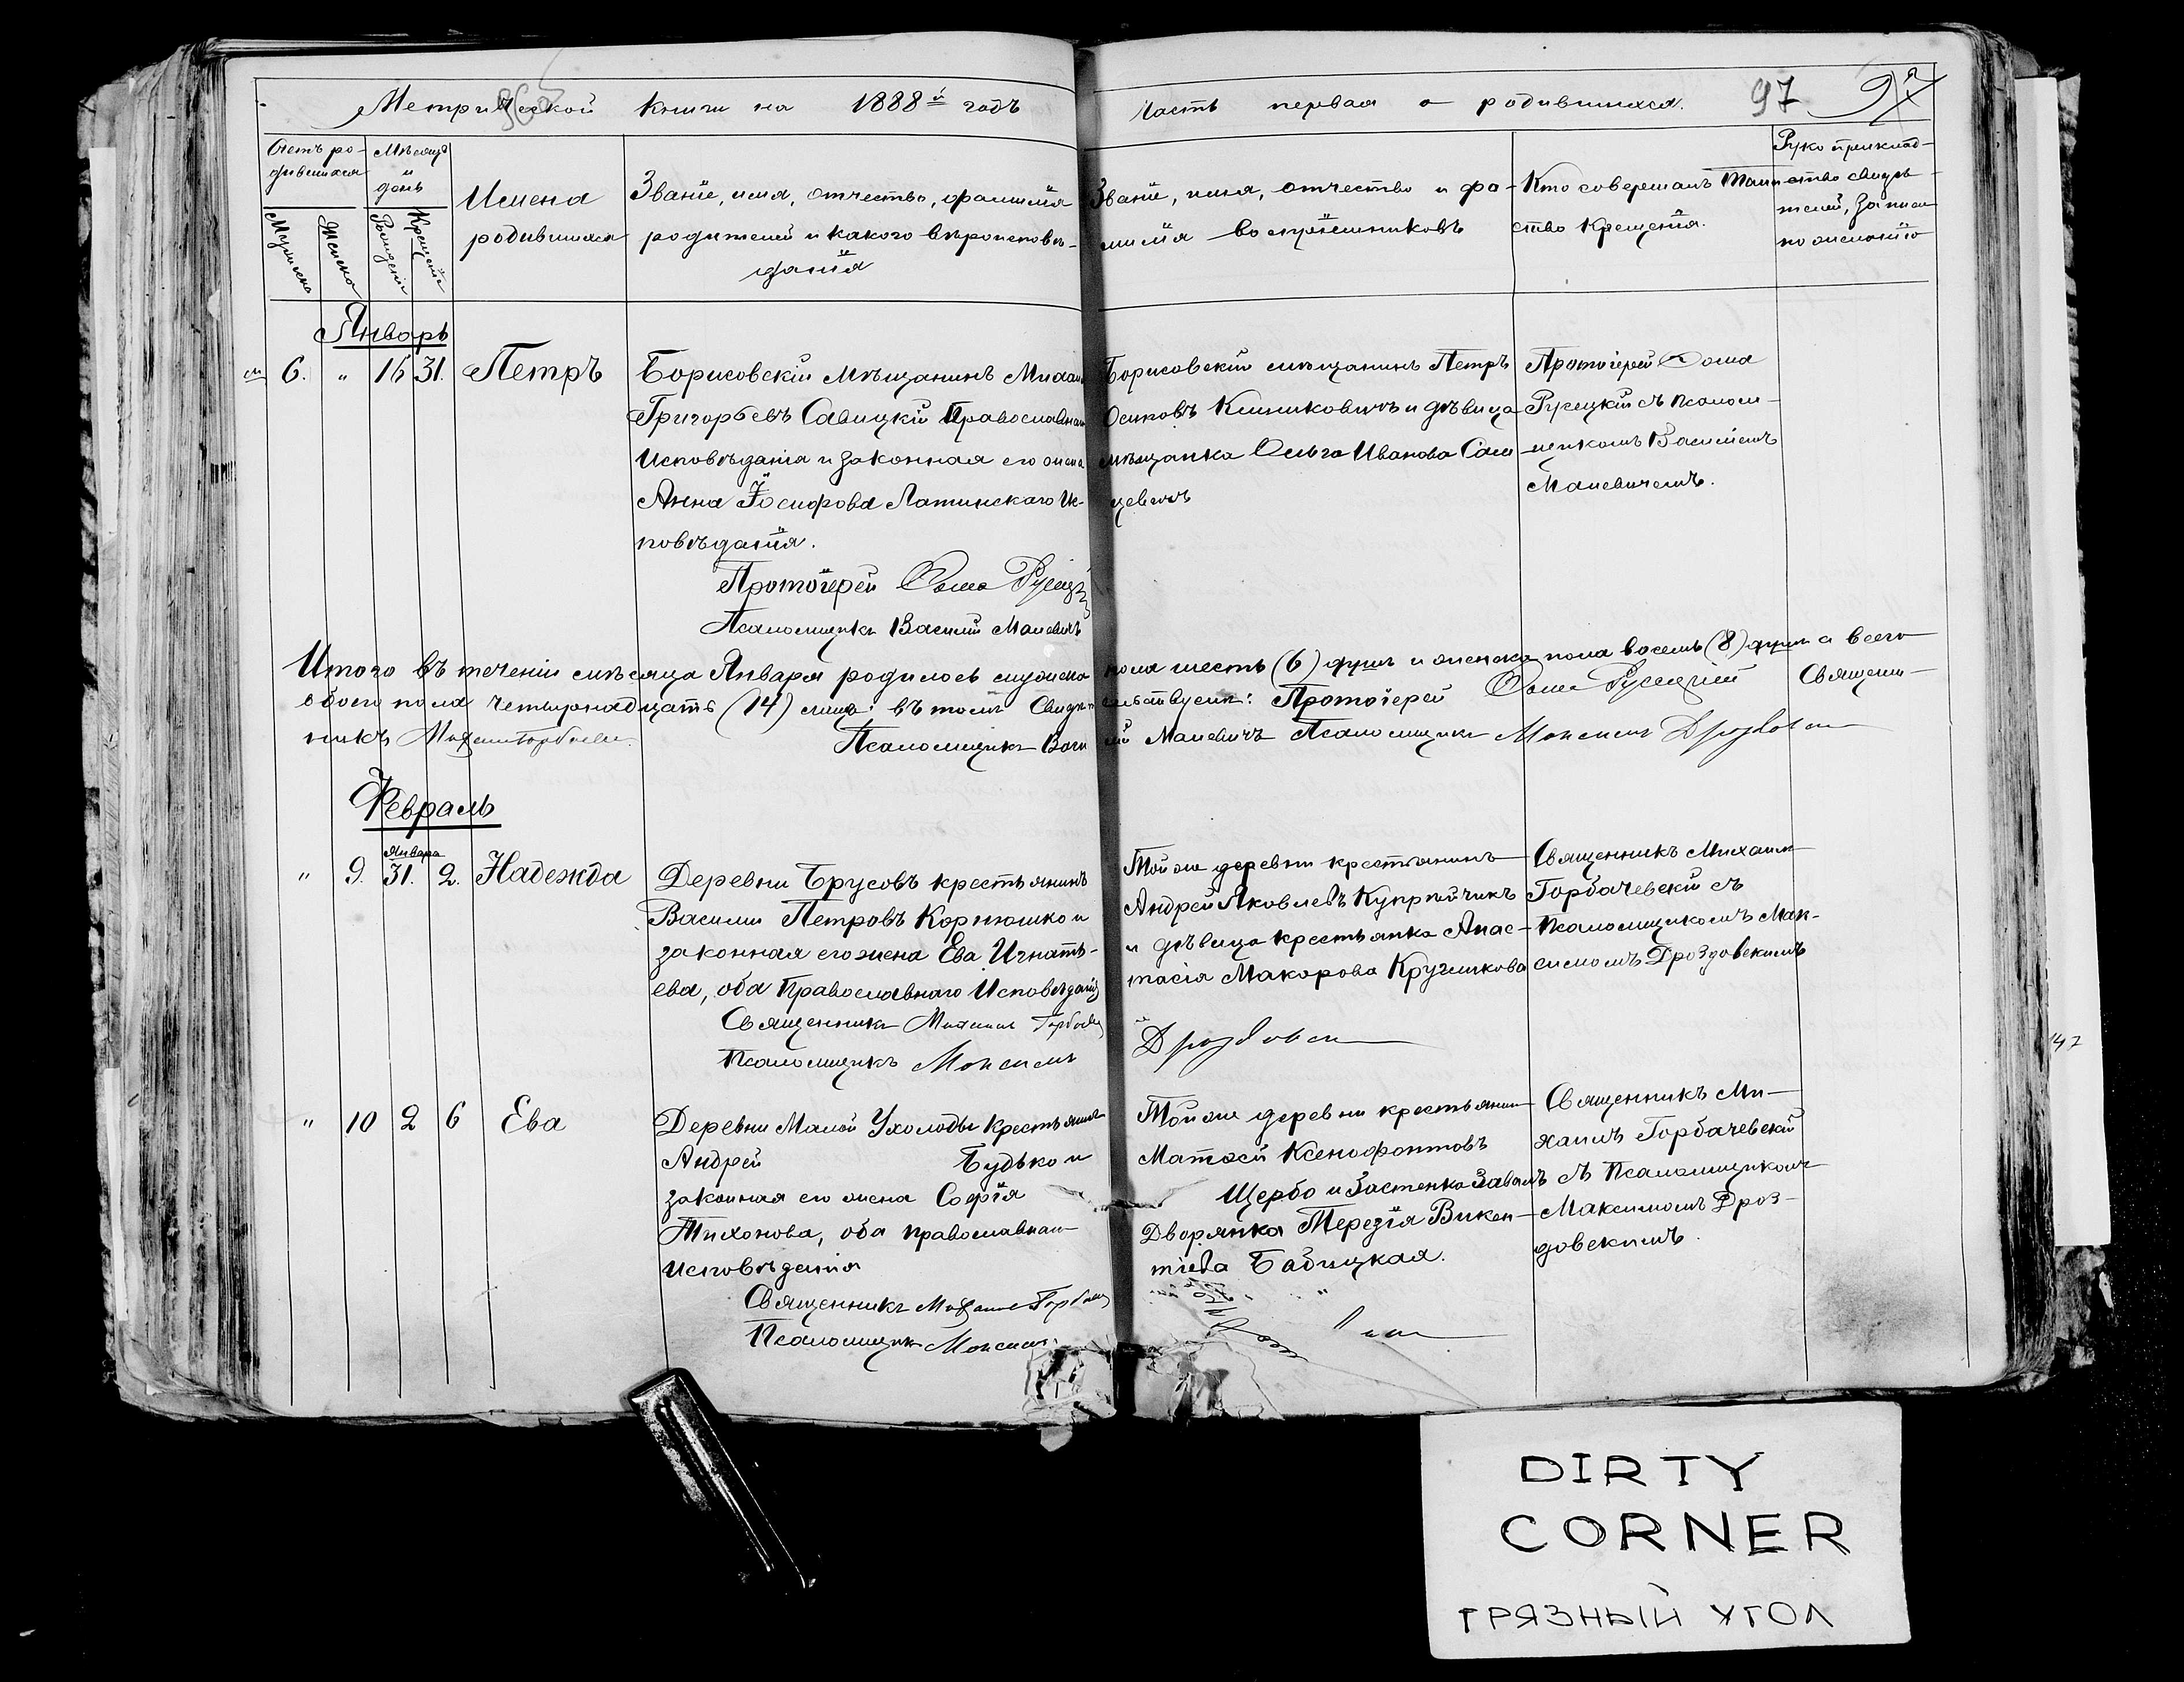 Метрической книги на 1888й годъ
Часть первая о родившихся. 97
Счетъ родившихся
Мужеска
Женска
Мѣсяцъ и день
Рожденія
Крещенія
Имена родившихся
Званіе, имя, отчество, фамилія
родителей и какого вѣроисповѣ-
данія
Званіе, имя, отчество и фа-
милія воспріемниковъ
Кто совершалъ Таин-
ство Крещенія.
Рукоприклад-
ство свидѣ-
телей, записи
по желанію
Январь
6. " 16 31. Петръ
Борисовскій мѣщанинъ Михаилъ
Григорьевъ Савицкій Православнаго
Исповѣданія и законная его жена
Анна Іосифова Латинскаго Ис-
повѣданія.
Протоіерей Фома Русецкій
Псаломщикъ Василій Малевичъ
Борисовскій мѣщанинъ Петръ
Осиповъ Климковичъ и дѣвица
мѣщанка Ольга Иванова
Протоіерей Фома
Русецкій съ псалом-
щикомъ Василіемъ
Малевичемъ.
Итого въ теченіи мѣсяца Января родилось мужеска пола шесть (6) душъ и женска пола восемь (8) душъ а всего
обоего пола четырнадцать (14) лицъ: въ томъ Свидѣтельствуемъ: Протоіерей Фома Русецкій Священ-
никъ Михаилъ Псаломщикъ Василій Малевичъ Псаломщикъ Максимъ Дроздовскій
Февраль
" 9. Января 31. 2. Надежда
Деревни Брусовъ крестьянинъ
Василій Петровъ Корнюшко и
законная его жена Ева Игнать-
ева, оба Православнаго Исповѣданія
Священникъ Михаилъ
Псаломщикъ Максимъ
Той же деревни крестьянинъ
Андрей Яковлевъ Купрійчикъ
и дѣвица крестьянка Анас-
тасія Макарова Кругликова
Дроздовскій
Священникъ Михаилъ
Горбачевскій съ
Псаломщикомъ Мак-
симомъ Дроздовскимъ
" 10 2 6 Ева
Деревни Малой Ухолоды крестьянинъ
Андрей Будько и
законная его жена Софія
Тихонова, оба православнаго
исповѣданія
Священникъ Михаилъ
Псаломщикъ Максимъ
Той же деревни крестьянинъ
Матвей Ксенофонтовъ
Щербо и Застенка Завалъ
Дворянка Терезія Викен-
тіева Бабицкая.
Священникъ Ми-
хаилъ Горбачевскій
съ Псаломщикомъ
Максимомъ Дроз-
довскимъ.
DIRTY
CORNER
ГРЯЗНЫЙ УГОЛ